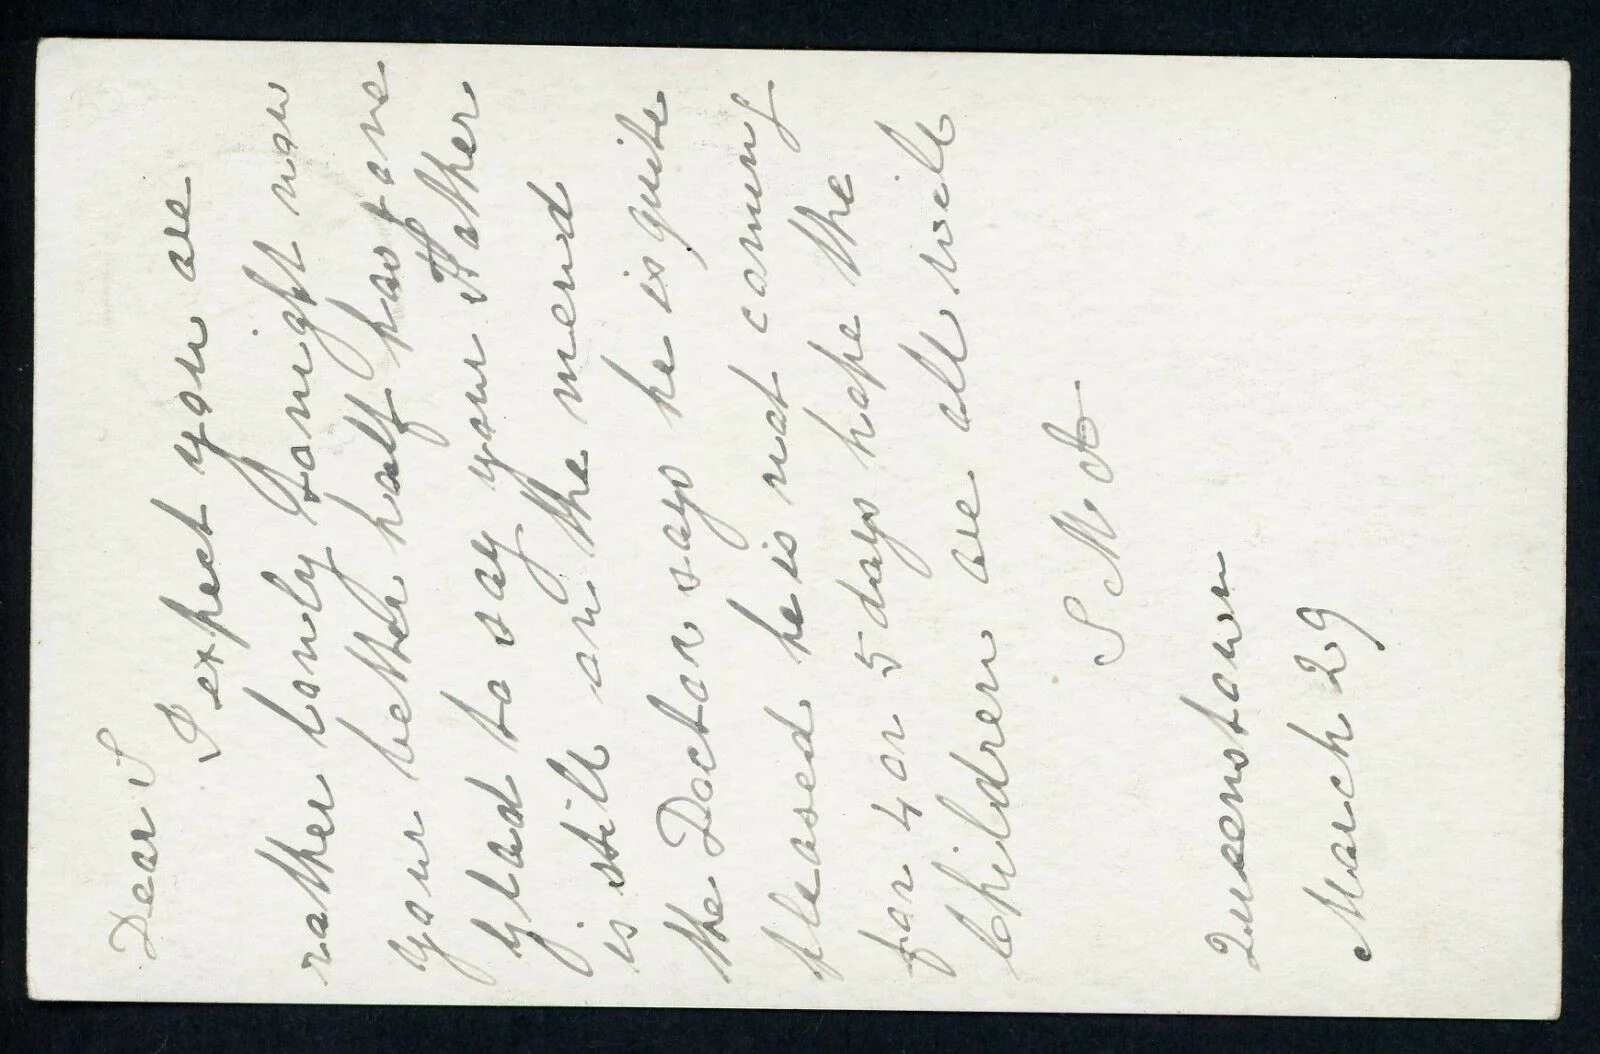 Dear S
I expect you are
rather lonly tonight now
your better half has gone
glad to say your Father
is still on the mend
the Doctor says he is quite
pleased he is not coming
for 4 or 5 days hope the
Children are all well
S M A
Queenstown
March 29